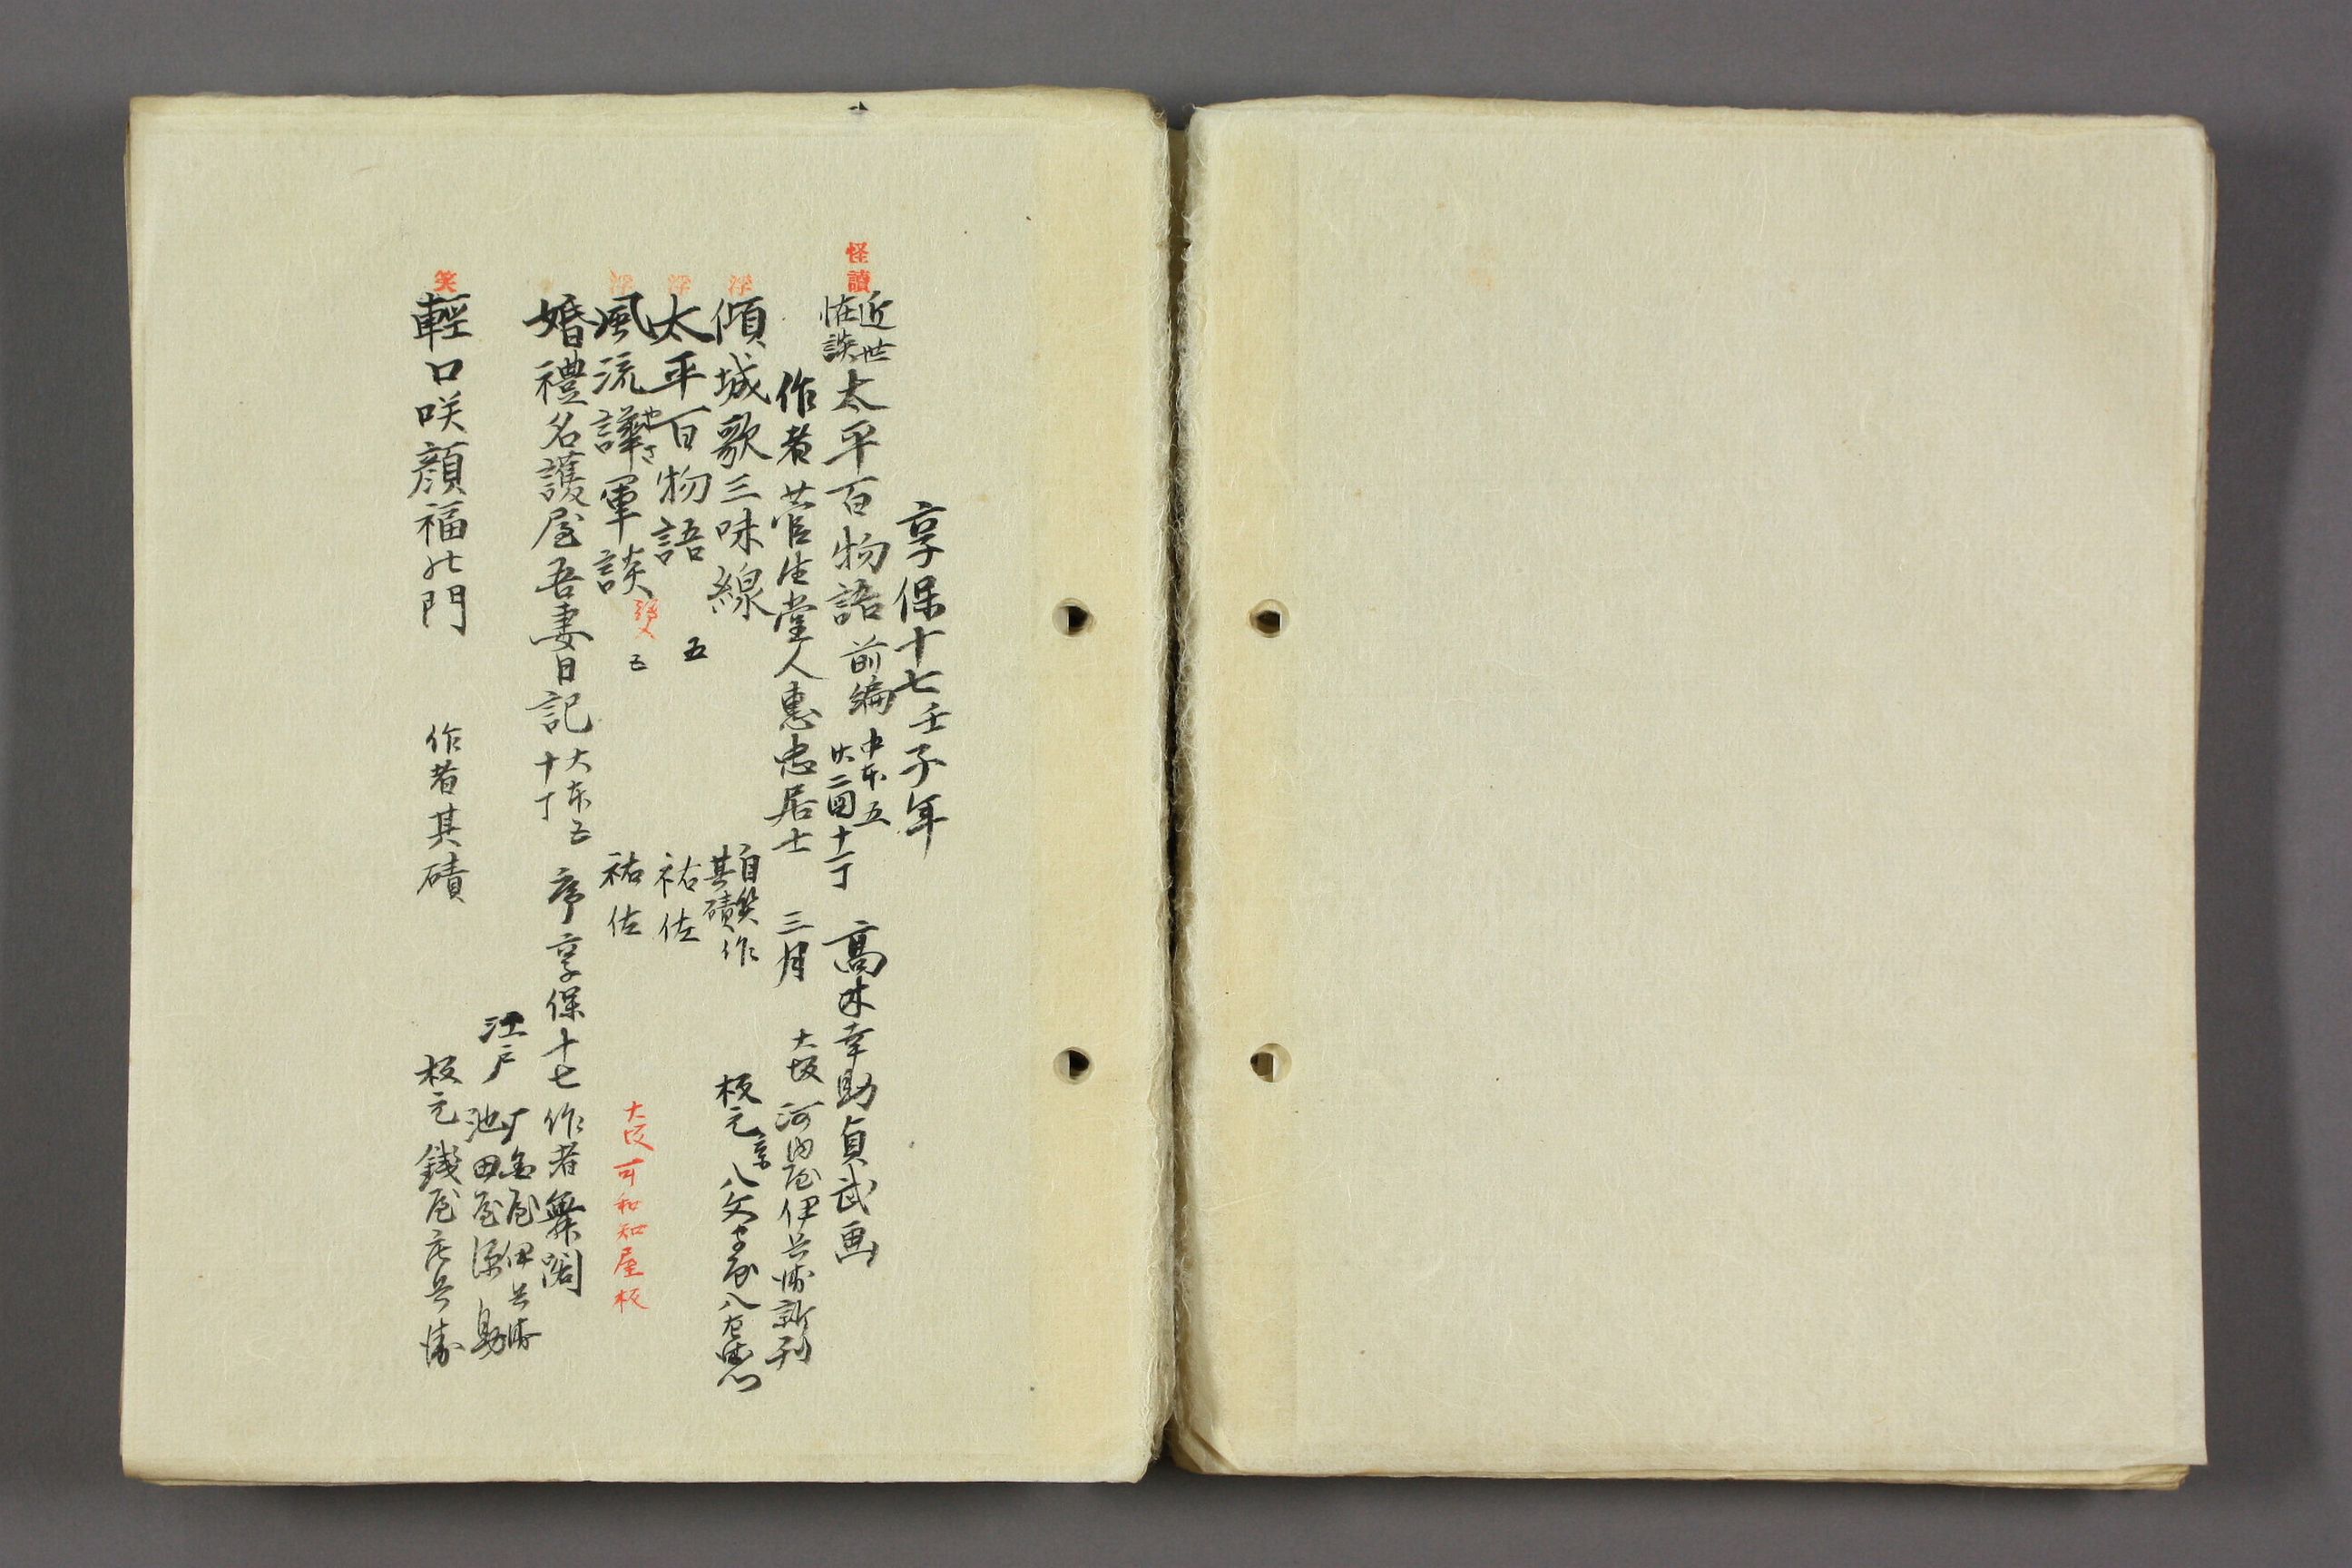 享保十七壬子年
怪
讀
近世
怪談
太平百物語 前編 中本五 高木幸助貞武画
作者 菅生堂人惠忠居士 三月 大坂 河内屋伊兵衛新刊
浮
傾城歌三味線 自笑 其磧 作 板元 京 八文字屋八左衛門
浮
太平百物語 五 祐佐
浮
風流譁軍談 五 祐佐
やさ
大坂可和知屋板
婚禮名護屋吾妻日記 大本五 十丁 序享保十七 作者無闕
江戸 伊兵衛
池田屋源助
笑
輕口咲顔福の門 作者其磧 板元 錢屋庄兵衛